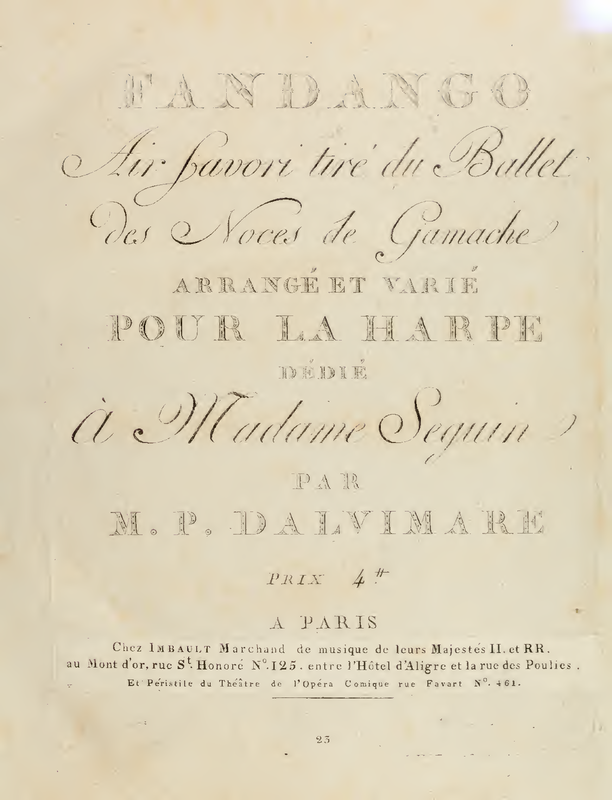 FANDANGO
Air favori tiré du Ballet
des Noces de Gamache
ARRANGÉ ET VARIÉ
POUR LA HARPE
DÉDIÉ
à Madame Seguin
PAR
M. P. DALVIMARE
PRIX 4 ᵗᵗ
A PARIS
Chez IMBAULT Marchand de musique de leurs Majestés II. et RR.
au Mont d'or, rue Sᵗ. Honoré Nº. 125. entre l'Hôtel d'Aligre et la rue des Poulies.
Et Péristile du Théâtre de l'Opéra Comique rue Favart Nº. 461.
23